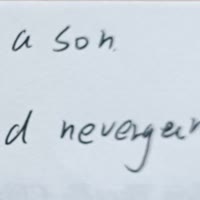 a son
d nevergear